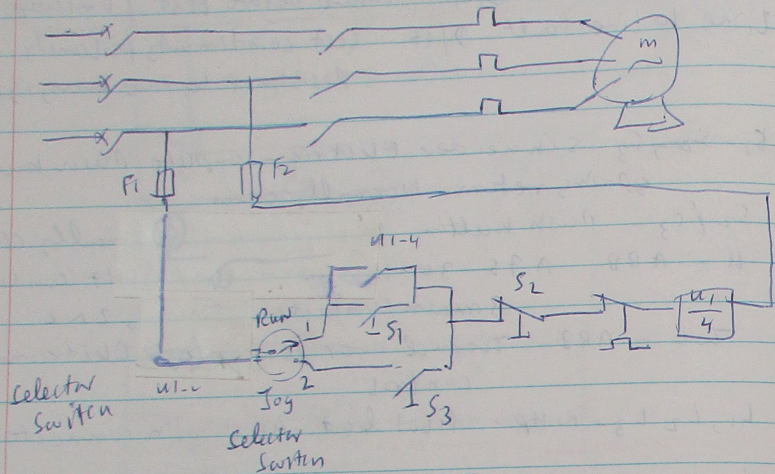 m
F1
F2
U1-4
S2
S1
RUN
1
U1
4
2
S3
Jog
Selector
Switch
Selector
Switch